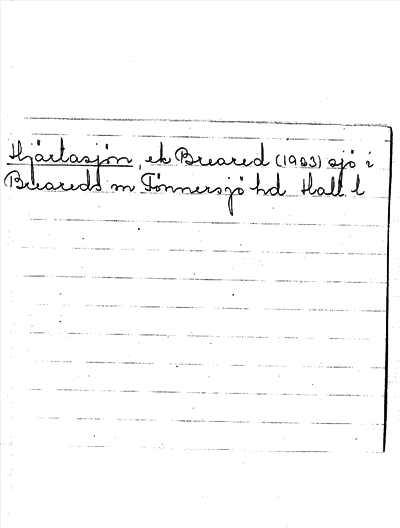 Hjärtasjön, ek Breared (1983) sjö i
Breareds sn Tönnersjö hd Hall l